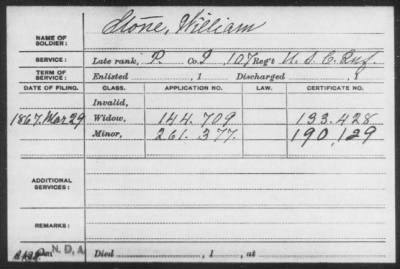 NAME OF SOLDIER: Stone, William
SERVICE: Late rank, P. Co. I, 107 Reg't U. S. C. Inf.
TERM OF SERVICE: Enlisted , 1 Discharged , 1
DATE OF FILING. CLASS. APPLICATION NO. LAW. CERTIFICATE NO.
Invalid,
1867. Mar 29 Widow, 144.709 133.428
Minor, 261.377. 190,129
ADDITIONAL SERVICES:
REMARKS:
N.D.A. Died , 1 , at